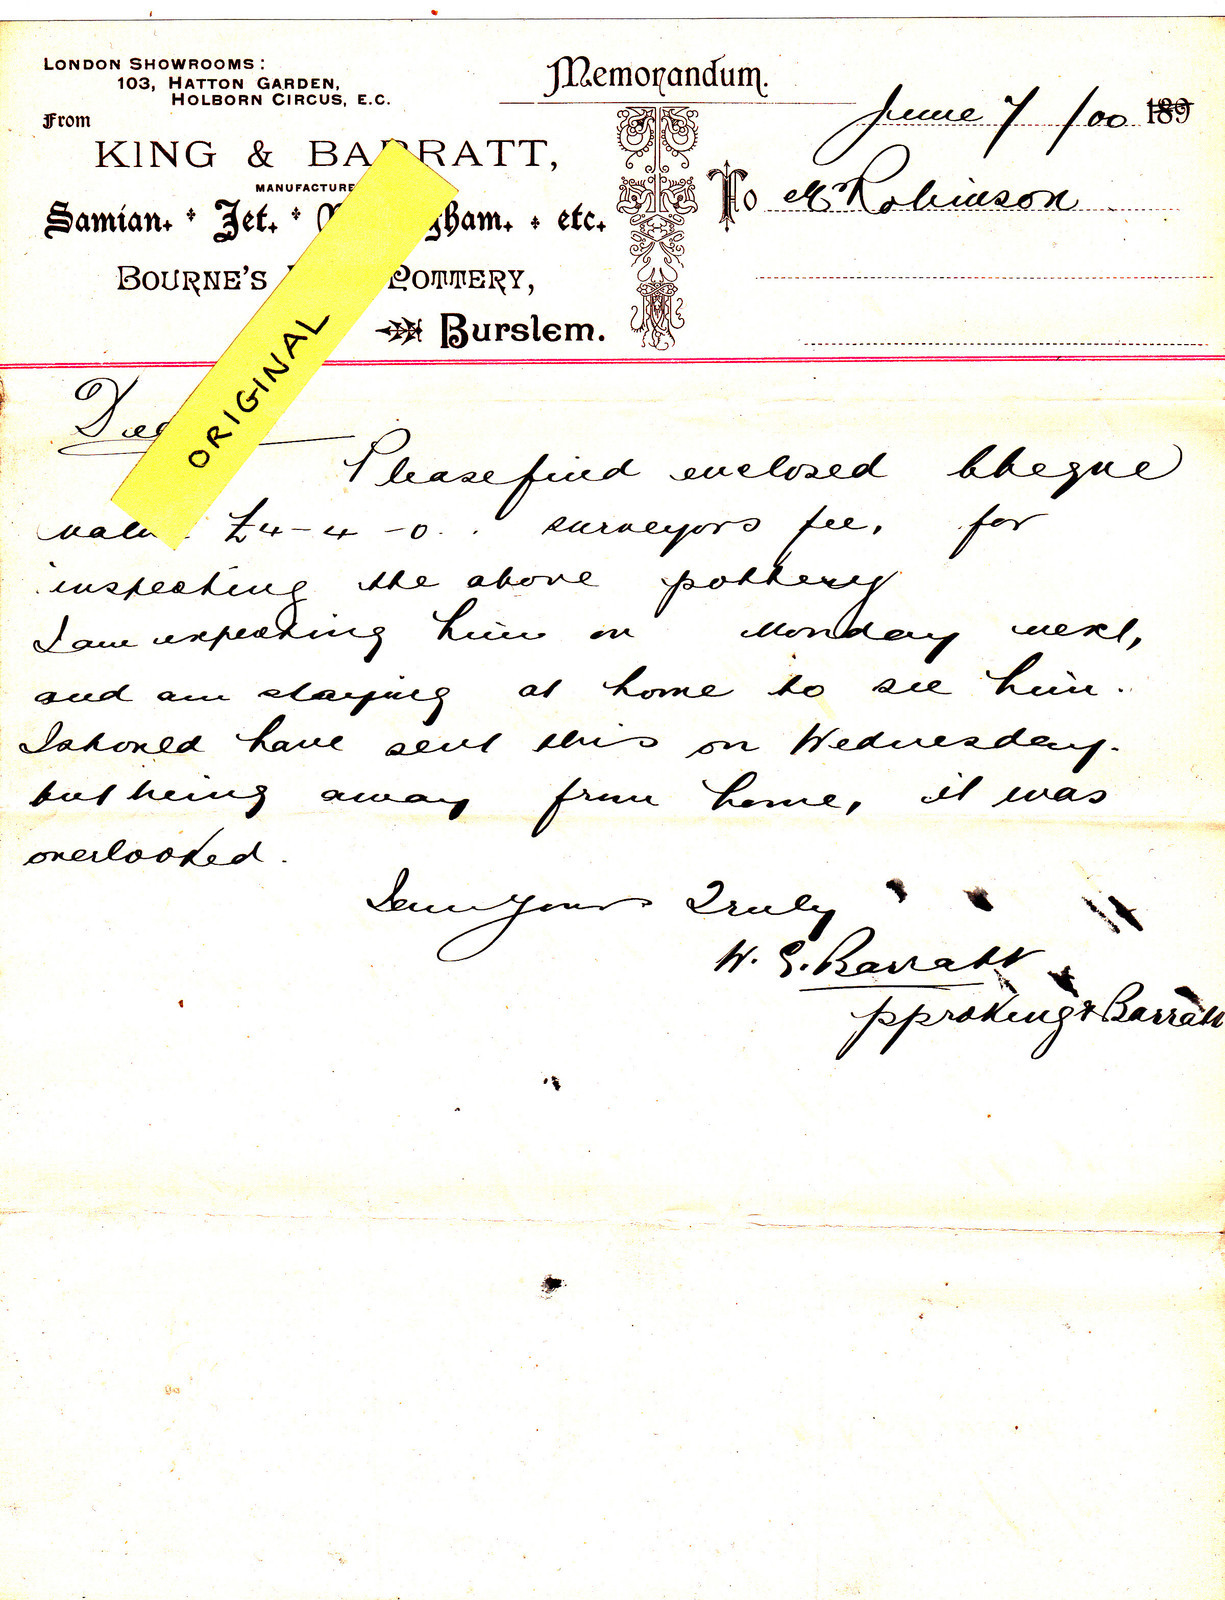 LONDON SHOWROOMS:
103, HATTON GARDEN,
HOLBORN CIRCUS, E.C.
Memorandum.
From
June 7 /00 189
KING & BARRATT,
MANUFACTURE
To Mr Robinson
Samian. Jet. etc.
BOURNE'S POTTERY,
Burslem.
ORIGINAL
Please find enclosed Cheque
value £4-4-0. surveyors fee, for
inspecting the above pottery
I am expecting him on Monday next,
and am staying at home to see him.
I should have sent this on Wednesday.
but being away from home, it was
overlooked.
I am Yours Truly
W. E. Barratt
pp King & Barratt